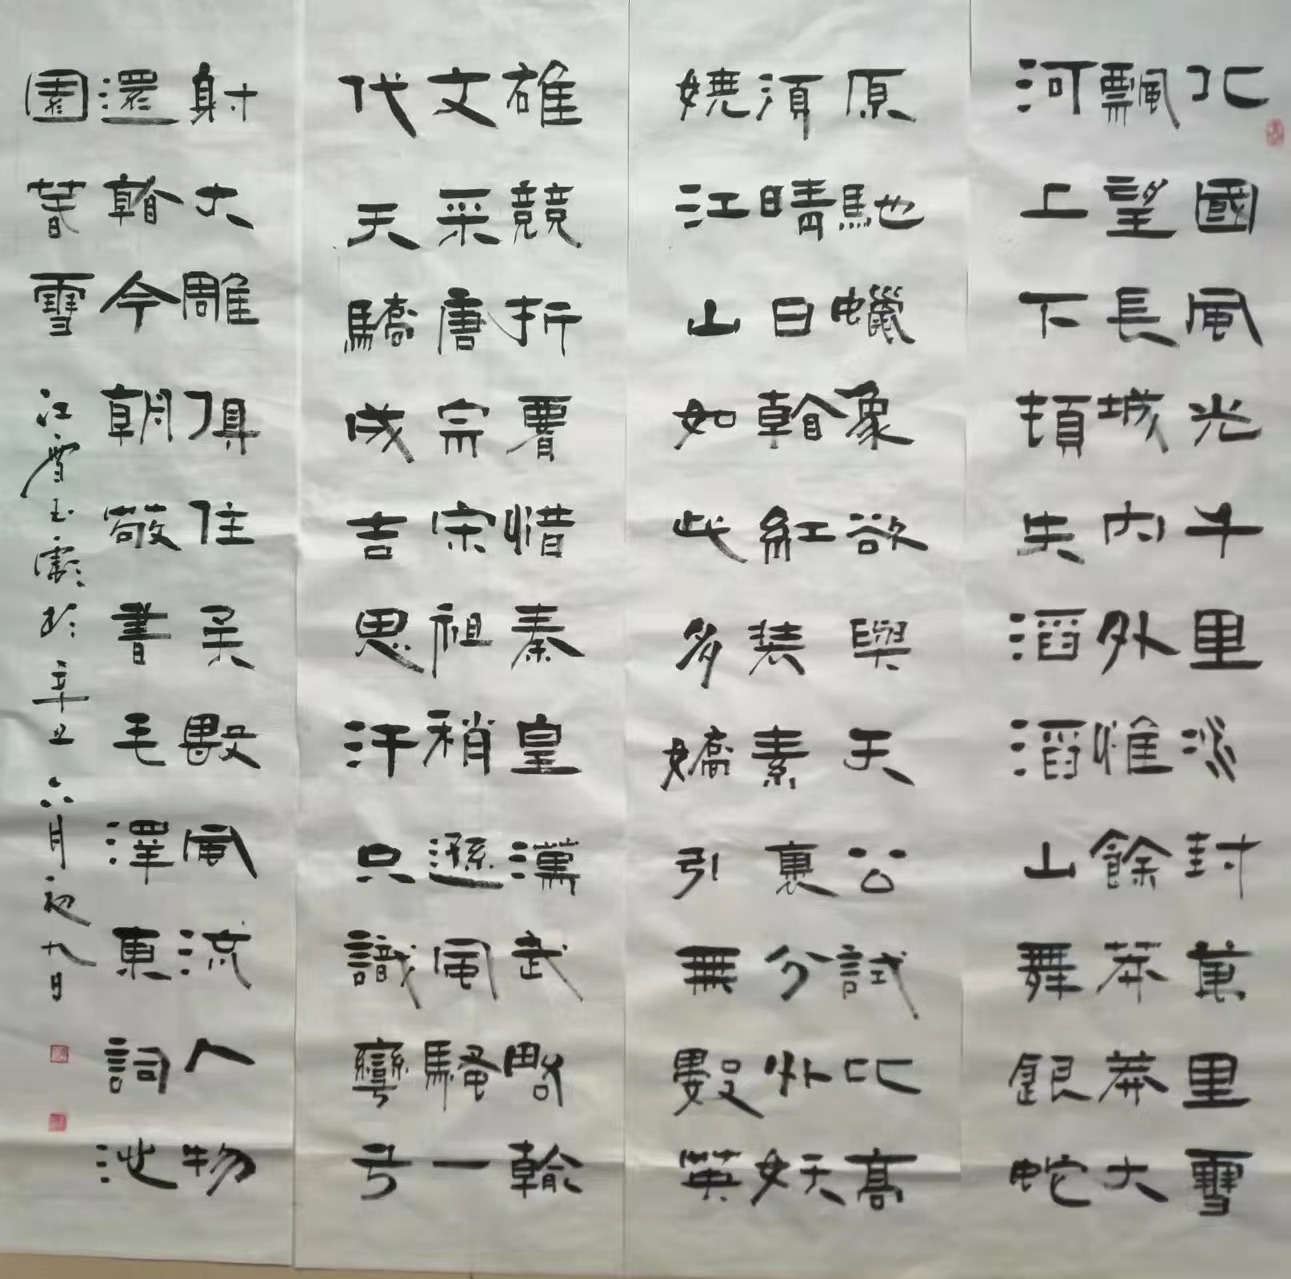 北國風光千里冰封萬里雪
飄望長城內外惟餘莽莽大
河上下頓失滔滔山舞銀蛇
原馳蠟象欲與天公試比高
須晴日看紅裝素裹分外妖
嬈江山如此多嬌引無數英
雄競折腰惜秦皇漢武略輸
文采唐宗宋祖稍遜風騷一
代天驕成吉思汗只識彎弓
射大雕俱往矣數風流人物
還看今朝敬書毛澤東詞沁
園春雪 江雪玉於辛丑六月初九日